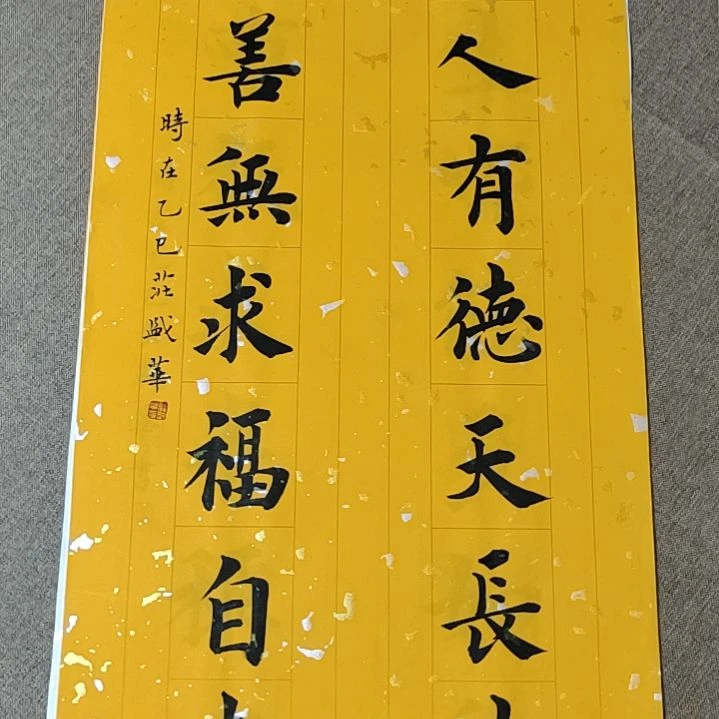 人有德天長
善無求福自
時在乙巳莊盛華